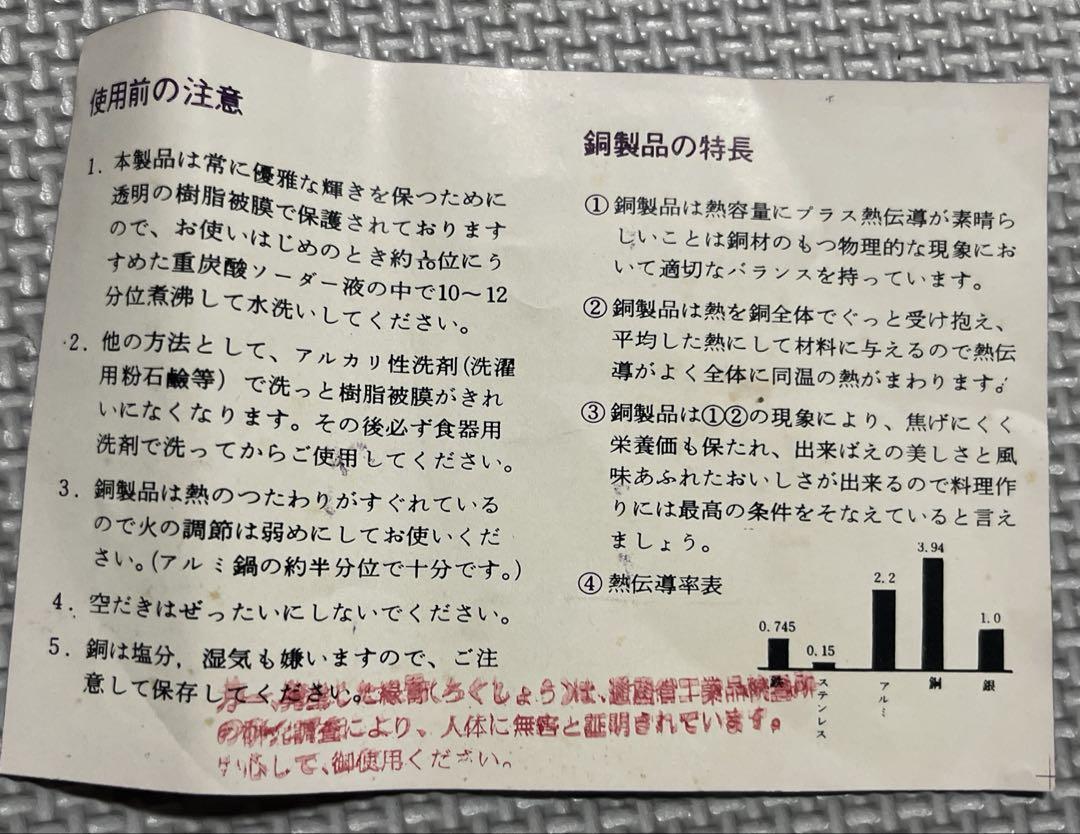 使用前の注意
1. 本製品は常に優雅な輝きを保つために
透明の樹脂被膜で保護されております
ので、お使いはじめのとき約1/10位にう
すめた重炭酸ソーダー液の中で10〜12
分位煮沸して水洗いしてください。
2. 他の方法として、アルカリ性洗剤(洗濯
用粉石鹼等) で洗っと樹脂被膜がきれ
いになくなります。その後必ず食器用
洗剤で洗ってからご使用してください。
3. 銅製品は熱のつたわりがすぐれている
ので火の調節は弱めにしてお使いくだ
さい。(アルミ鍋の約半分位で十分です。)
4. 空だきはぜったいにしないでください。
5. 銅は塩分, 湿気も嫌いますので、ご注
意して保存してください。
緑青(ろくしょう)は、
調査により、人体に無害と証明されています。
心して、御使用ください。
銅製品の特長
① 銅製品は熱容量にプラス熱伝導が素晴ら
しいことは銅材のもつ物理的な現象にお
いて適切なバランスを持っています。
② 銅製品は熱を銅全体でぐっと受け抱え、
平均した熱にして材料に与えるので熱伝
導がよく全体に同温の熱がまわります。
③ 銅製品は①②の現象により、焦げにくく
栄養価も保たれ、出来ばえの美しさと風
味あふれたおいしさが出来るので料理作
りには最高の条件をそなえていると言え
ましょう。
④ 熱伝導率表
0.745
0.15
2.2
3.94
1.0
鉄
ステンレス
アルミ
銅
銀